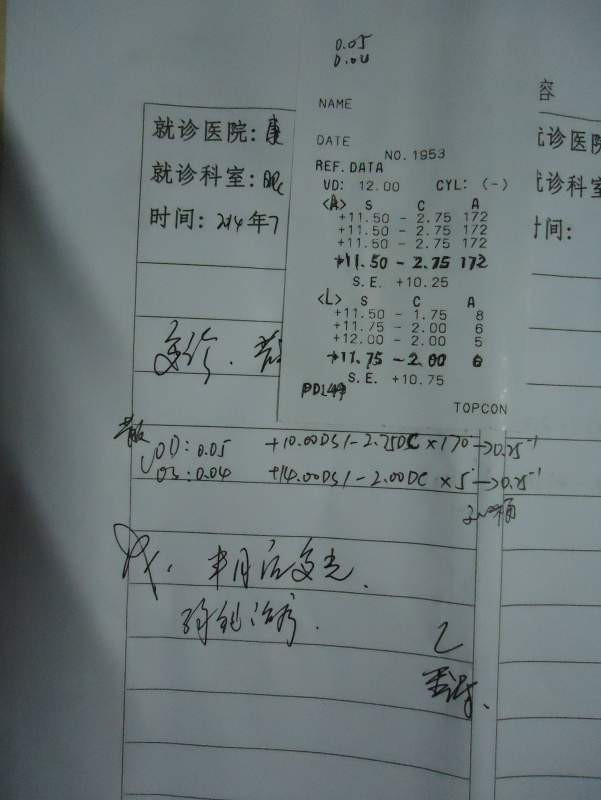 0.05
0.04
容
NAME
就诊医院:康
就诊医院
DATE
NO.1953
REF.DATA
就诊科室:眼
就诊科室
VD: 12.00 CYL: (-)
时间: 2014年7
时间:
<R> S C A
+11.50 - 2.75 172
+11.50 - 2.75 172
+11.50 - 2.75 172
+11.50 - 2.75 172
S.E. +10.25
<L> S C A
+11.50 - 1.75 8
+11.75 - 2.00 6
+12.00 - 2.00 5
+11.75 - 2.00 6
S.E. +10.75
PD
TOPCON
复诊.
OD: 0.05 +10.00DS/-2.75DC×170→0.25⁻¹
OS: 0.04 +14.00DS/-2.00DC×5→0.25⁻¹
半月后复光.
治疗.